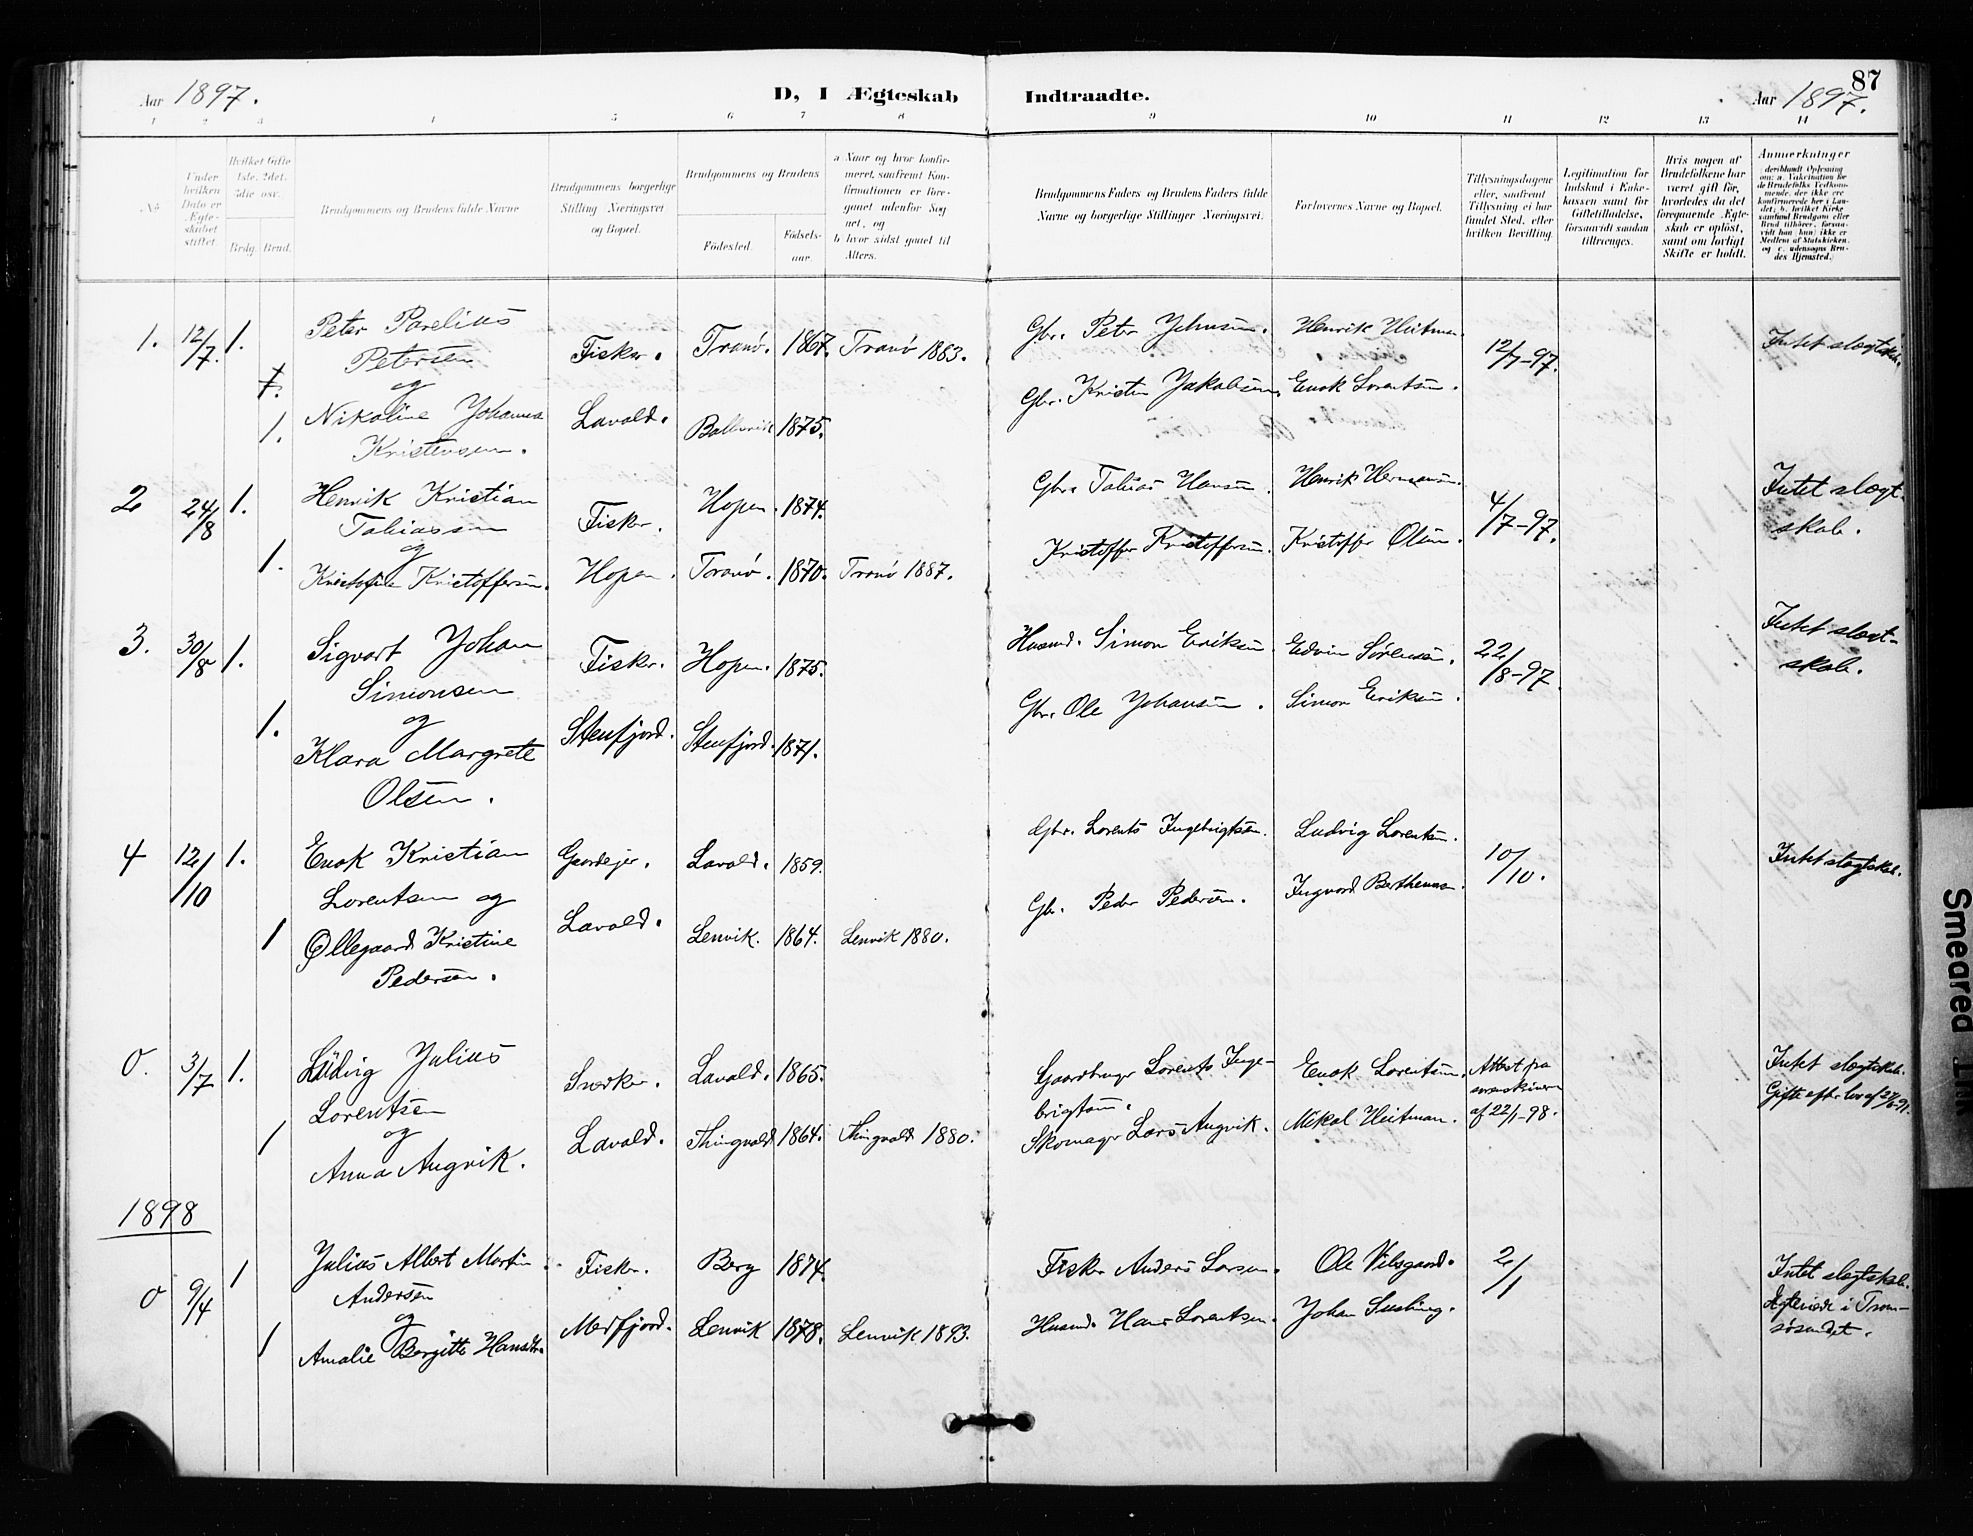 Aar 1897.
D, I Ægteskab Indtraadte.
87
Aar 1897.
1 2 3 4 5 6 7 8 9 10 11 12 13 14
No
Under hvilken Dato er Ægteskabet stiftet.
Hvilket Gifte 1ste. 2det. 3die osv.
Brdg. Brud.
Brudgommens og Brudens fulde Navne
Brudgommens borgerlige Stilling Næringsvei og Bopæl.
Brudgommens og Brudens
Fødested.
Fødselsaar.
a Naar og hvor konfirmeret, saafremt Konfirmationen er foregaaet udenfor Sognet, og
b hvor sidst gaaet til Alters.
Brudgommens Faders og Brudens Faders fulde Navne og borgerlige Stillinger Næringsvei.
Forlovernes Navne og Bopæl.
Tillysningsdagene eller, saafremt Tillysning ei har fundet Sted, efter hvilken Bevilling.
Legitimation for Indskud i Enkekassen samt for Giftetilladelse, forsaavidt saadan tiltrænges.
Hvis nogen af Brudefolkene har været gift før, hvorledes da det foregaaende Ægteskab er opløst, samt om lovligt Skifte er holdt.
Anmærkninger
deriblandt Oplysning om: a. Vakcination for de Brudefolks Vedkommende, der ikke ere konfirmerede her i Landet; b. hvilket Kirkesamfund Brudgom eller Brud tilhører, forsaavidt han (hun) ikke er Medlem af Statskirken, og c. udensogns Brudes Hjemsted.
1. 12/7. 1. Peter Parelius Petersen Fisker. Tranø. 1867. Tranø 1883. Gbr. Peter Johnsen. Henrik Heitman. 12/7-97. Intet slægtskab.
og
1. Nikoline Johanna Kristensen. Lavold. Ballesvik 1875. Gbr. Kristen Jakobsen. Enok Lorentsen.
2 24/8 1. Henrik Kristian Tobiassen Fisker. Hopen. 1874. Gbr. Tobias Hansen. Henrik Hermansen. 4/7-97. Intet slægtskab.
og
1. Kristoffersen. Hopen. Tranø. 1870. Tranø 1887. Kristoffer Kristoffersen. Kristoffer Olsen.
3. 30/8 1. Sigvart Johan Simonsen Fisker. Hopen. 1875. Husmd. Simon Eriksen. Edvin Sørensen. 22/8-97. Intet slægtskab.
og
1. Klara Margrete Olsen. Stenfjord. Stenfjord. 1871. Gbr. Ole Johansen. Simon Eriksen.
4 12/10 1. Enok Kristian Lorentsen og Gaardejer. Lavold. 1859. Gbr. Lorents Ingebrigtsen. Ludvig Lorentsen. 10/10. Intet slægtskab.
1 Øllegaard Kristine Pedersen. Lavold. Lenvik. 1864. Lenvik 1880. Gbr. Peder Pedersen. Ingvard Bertheussen.
0. 3/7 1. Ludvig Julius Lorentsen Snedker. Lavold. 1865. Gaardbruger Lorents Ingebrigtsen. Enok Lorentsen. Attest fra sorenskriveren af 22/1-98. Intet slægtskab. Gifte efter lov af 27/6-91.
og
1 Anna Angvik. Lavold. Thingvold 1864. Thingvold 1880. Skomager Lars Angvik. Mikal Heitman.
1898
0 9/4 1 Julius Albert Martin Andersen Fisker. Berg 1874. Fisker Anders Larsen. Ole Vilsgaard. 2/1 Intet slægtskab. Ægteviede i Tromsøsundet.
og
1 Amalie Bergitte Hansdtr. Mefjord. Lenvik 1878. Lenvik 1893. Husmd. Hans Lorentsen. Johan
Smeared Ink